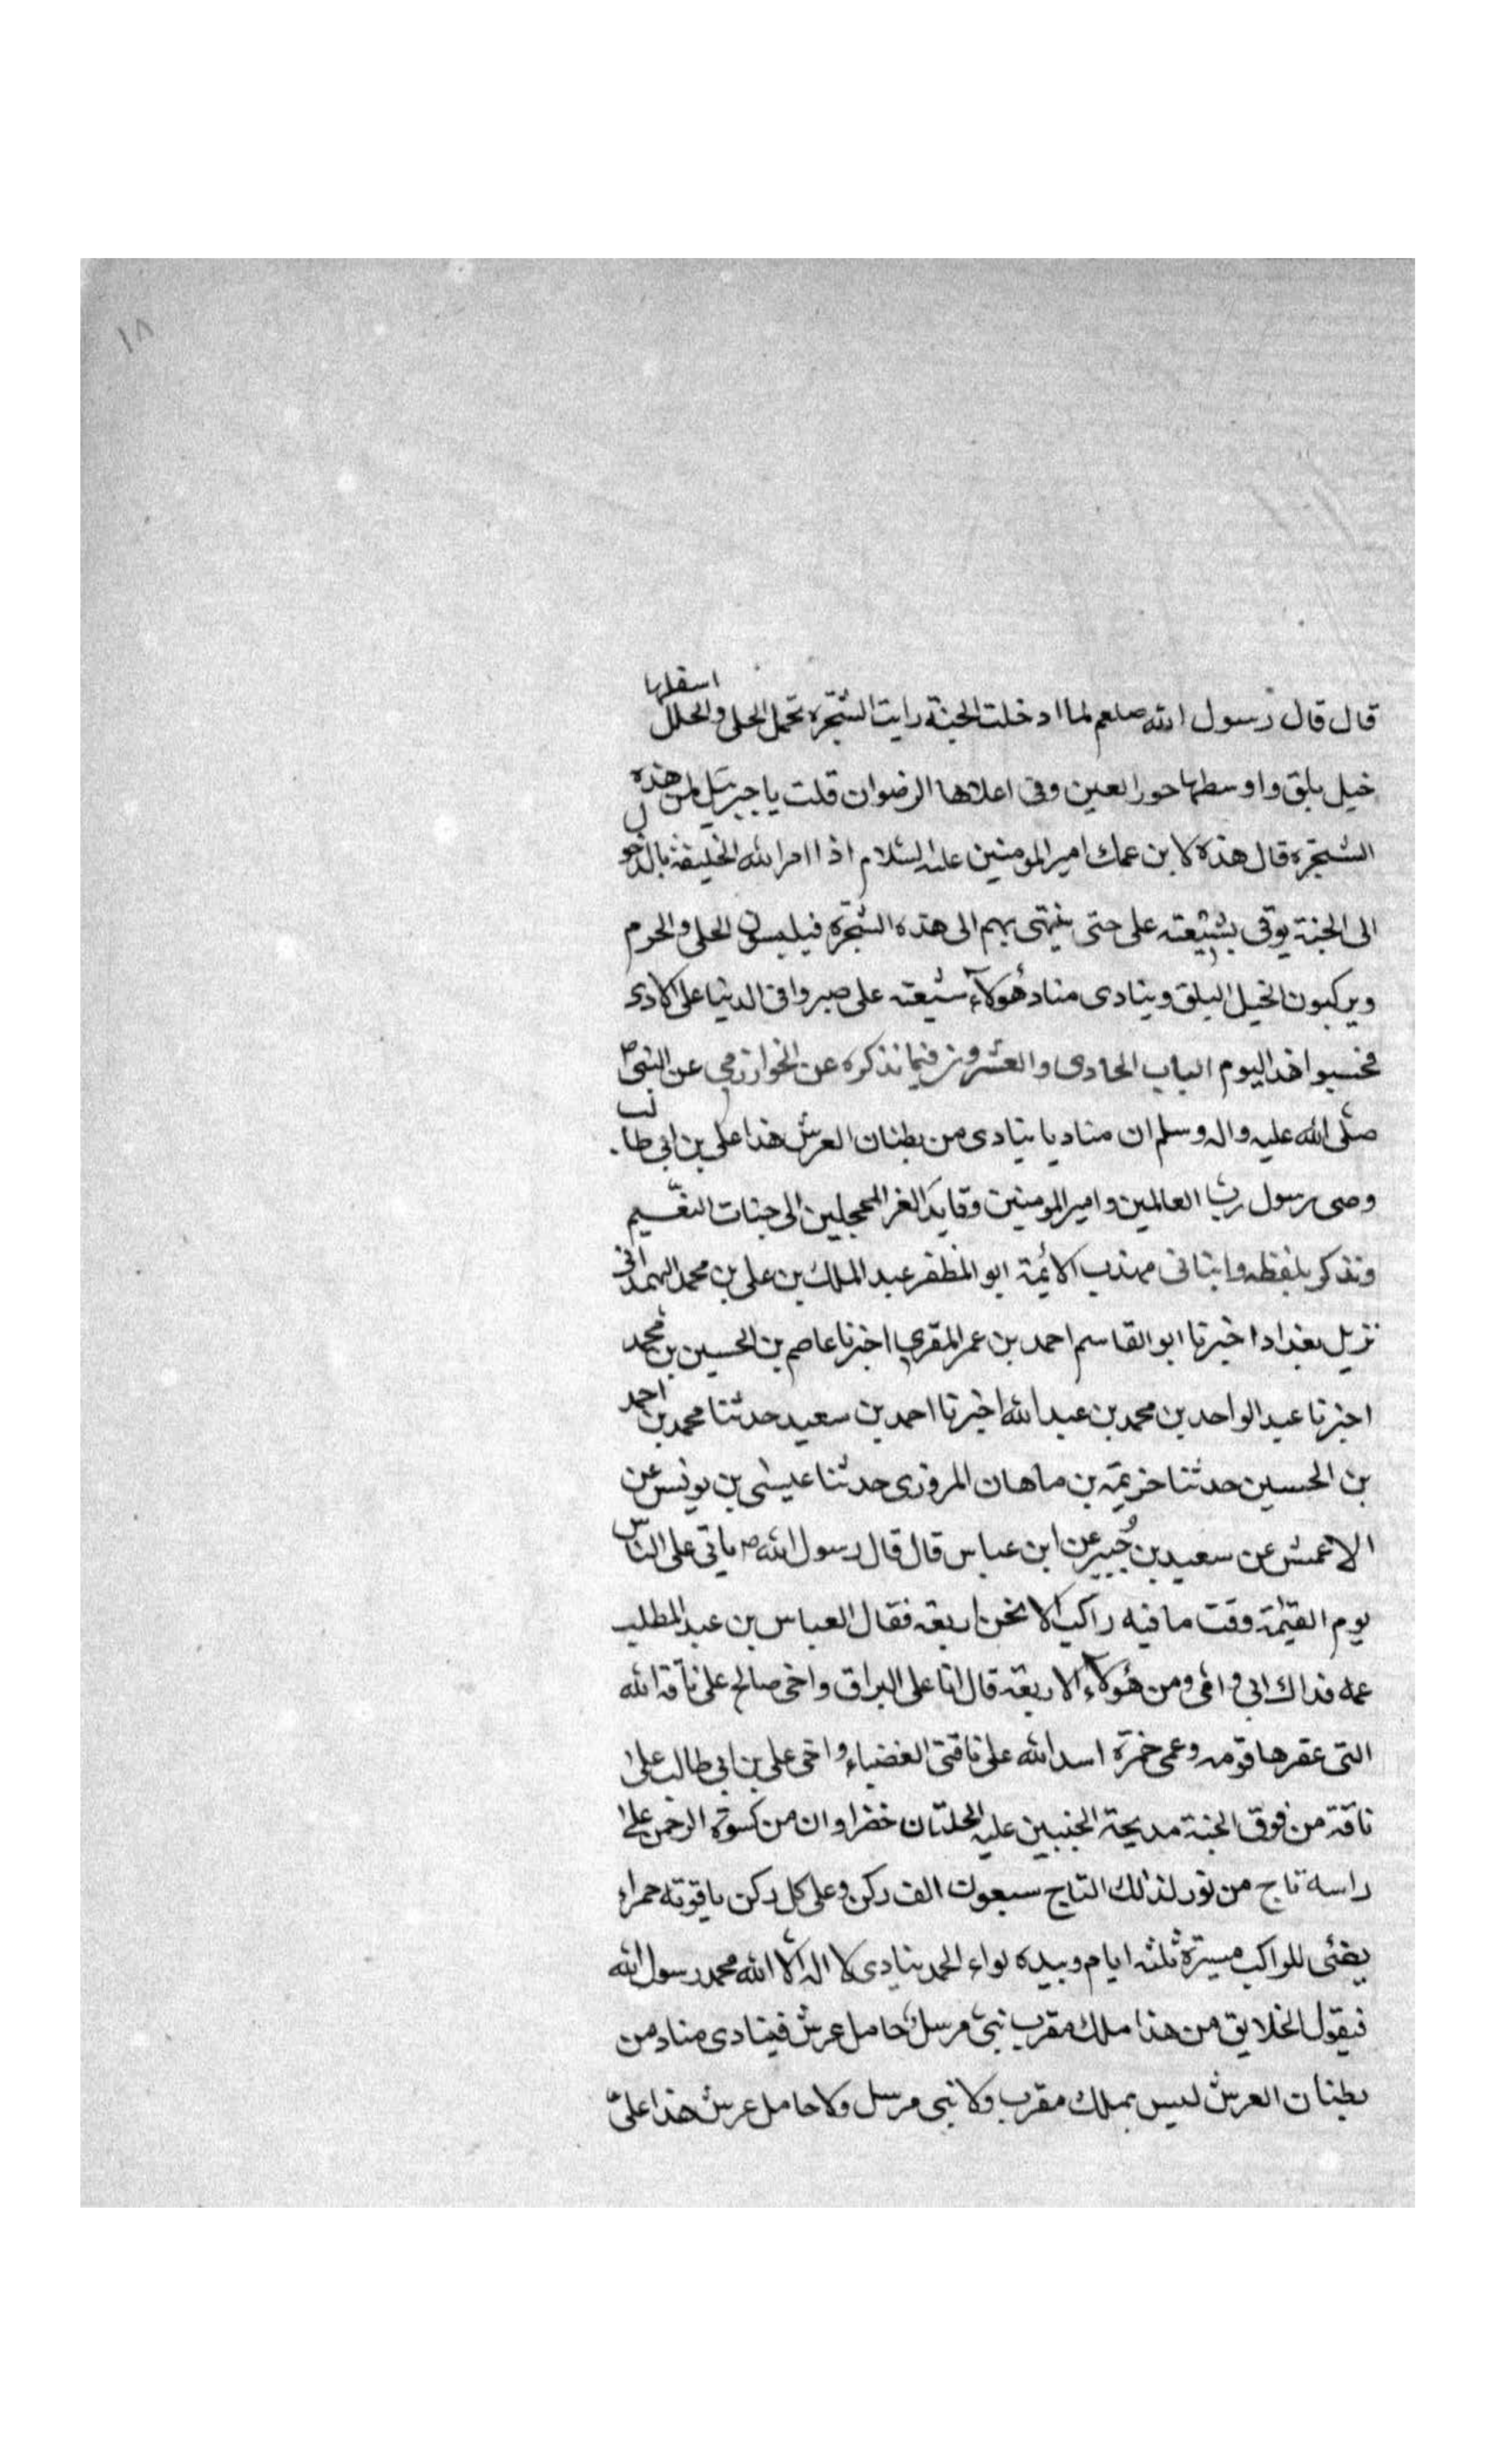 ١٨
قال قال رسول الله صلعم لما ادخلت الجنة رايت الشجره تحمل الحلى والحلل اسفلها
خيل بلق واوسطها حور العين وفى اعلاها الرضوان قلت يا جبرئيل لمن هذه
الشجره قال هذه لابن عمك امير المومنين عليه السلام اذا امر الله الخليفة بالدخول
الى الجنة يوتى بشيعته على حتى ينتهى بهم الى هذه الشجرة فيلبسون الحلى والحرم
ويركبون الخيل البلق وينادى مناد هولآء شيعته على صبروا فى الدنيا على الاذى
فحسبوا هذا اليوم الباب الحادى والعشرون فيما نذكره عن الخوارزمى عن النبى ص
صلى الله عليه واله وسلم ان مناديا ينادى من بطنان العرش هذا على بن ابى طالب
وصى رسول رب العالمين وامير المومنين وقايد الغر المحجلين الى جنات النعيم
ونذكر بلفظه وانبانى مهذب الائمة ابو المظفر عبد الملك بن على بن محمد الهمدانى
نزيل بغداد اخبرنا ابو القاسم احمد بن عمر المقرى اخبرنا عاصم بن الحسين بن محمد
اخبرنا عبد الواحد بن محمد بن عبد الله اخبرنا احمد بن سعيد حدثنا محمد بن احمد
بن الحسين حدثنا خزيمة بن ماهان المروزى حدثنا عيسى بن يونس عن
الاعمش عن سعيد بن جُبير عن ابن عباس قال قال رسول الله ص ياتى على الناس
يوم القيمة وقت ما فيه راكب الا نحن اربعة فقال العباس بن عبد المطلب
عمه فداك ابى وامى ومن هولآء الاربعة قال انا على البراق واخى صالح على ناقة الله
التى عقرها قومه وعمى حمزة اسد الله على ناقتى الغضباء واخى على بن ابى طالب على
ناقة من نوق الجنة مدبجة الجنبين عليه حلتان خضراوان من كسوة الرحمن على
راسه تاج من نور لذلك التاج سبعون الف ركن وعلى كل ركن ياقوته حمراء
يضئى للراكب مسيرة ثلثه ايام وبيده لواء الحمد ينادى لا اله الا الله محمد رسول الله
فيقول الخلايق من هذا ملك مقرب نبى مرسل حامل عرش فينادى مناد من
بطنان العرش ليس بملك مقرب ولا نبى مرسل ولا حامل عرش هذا على